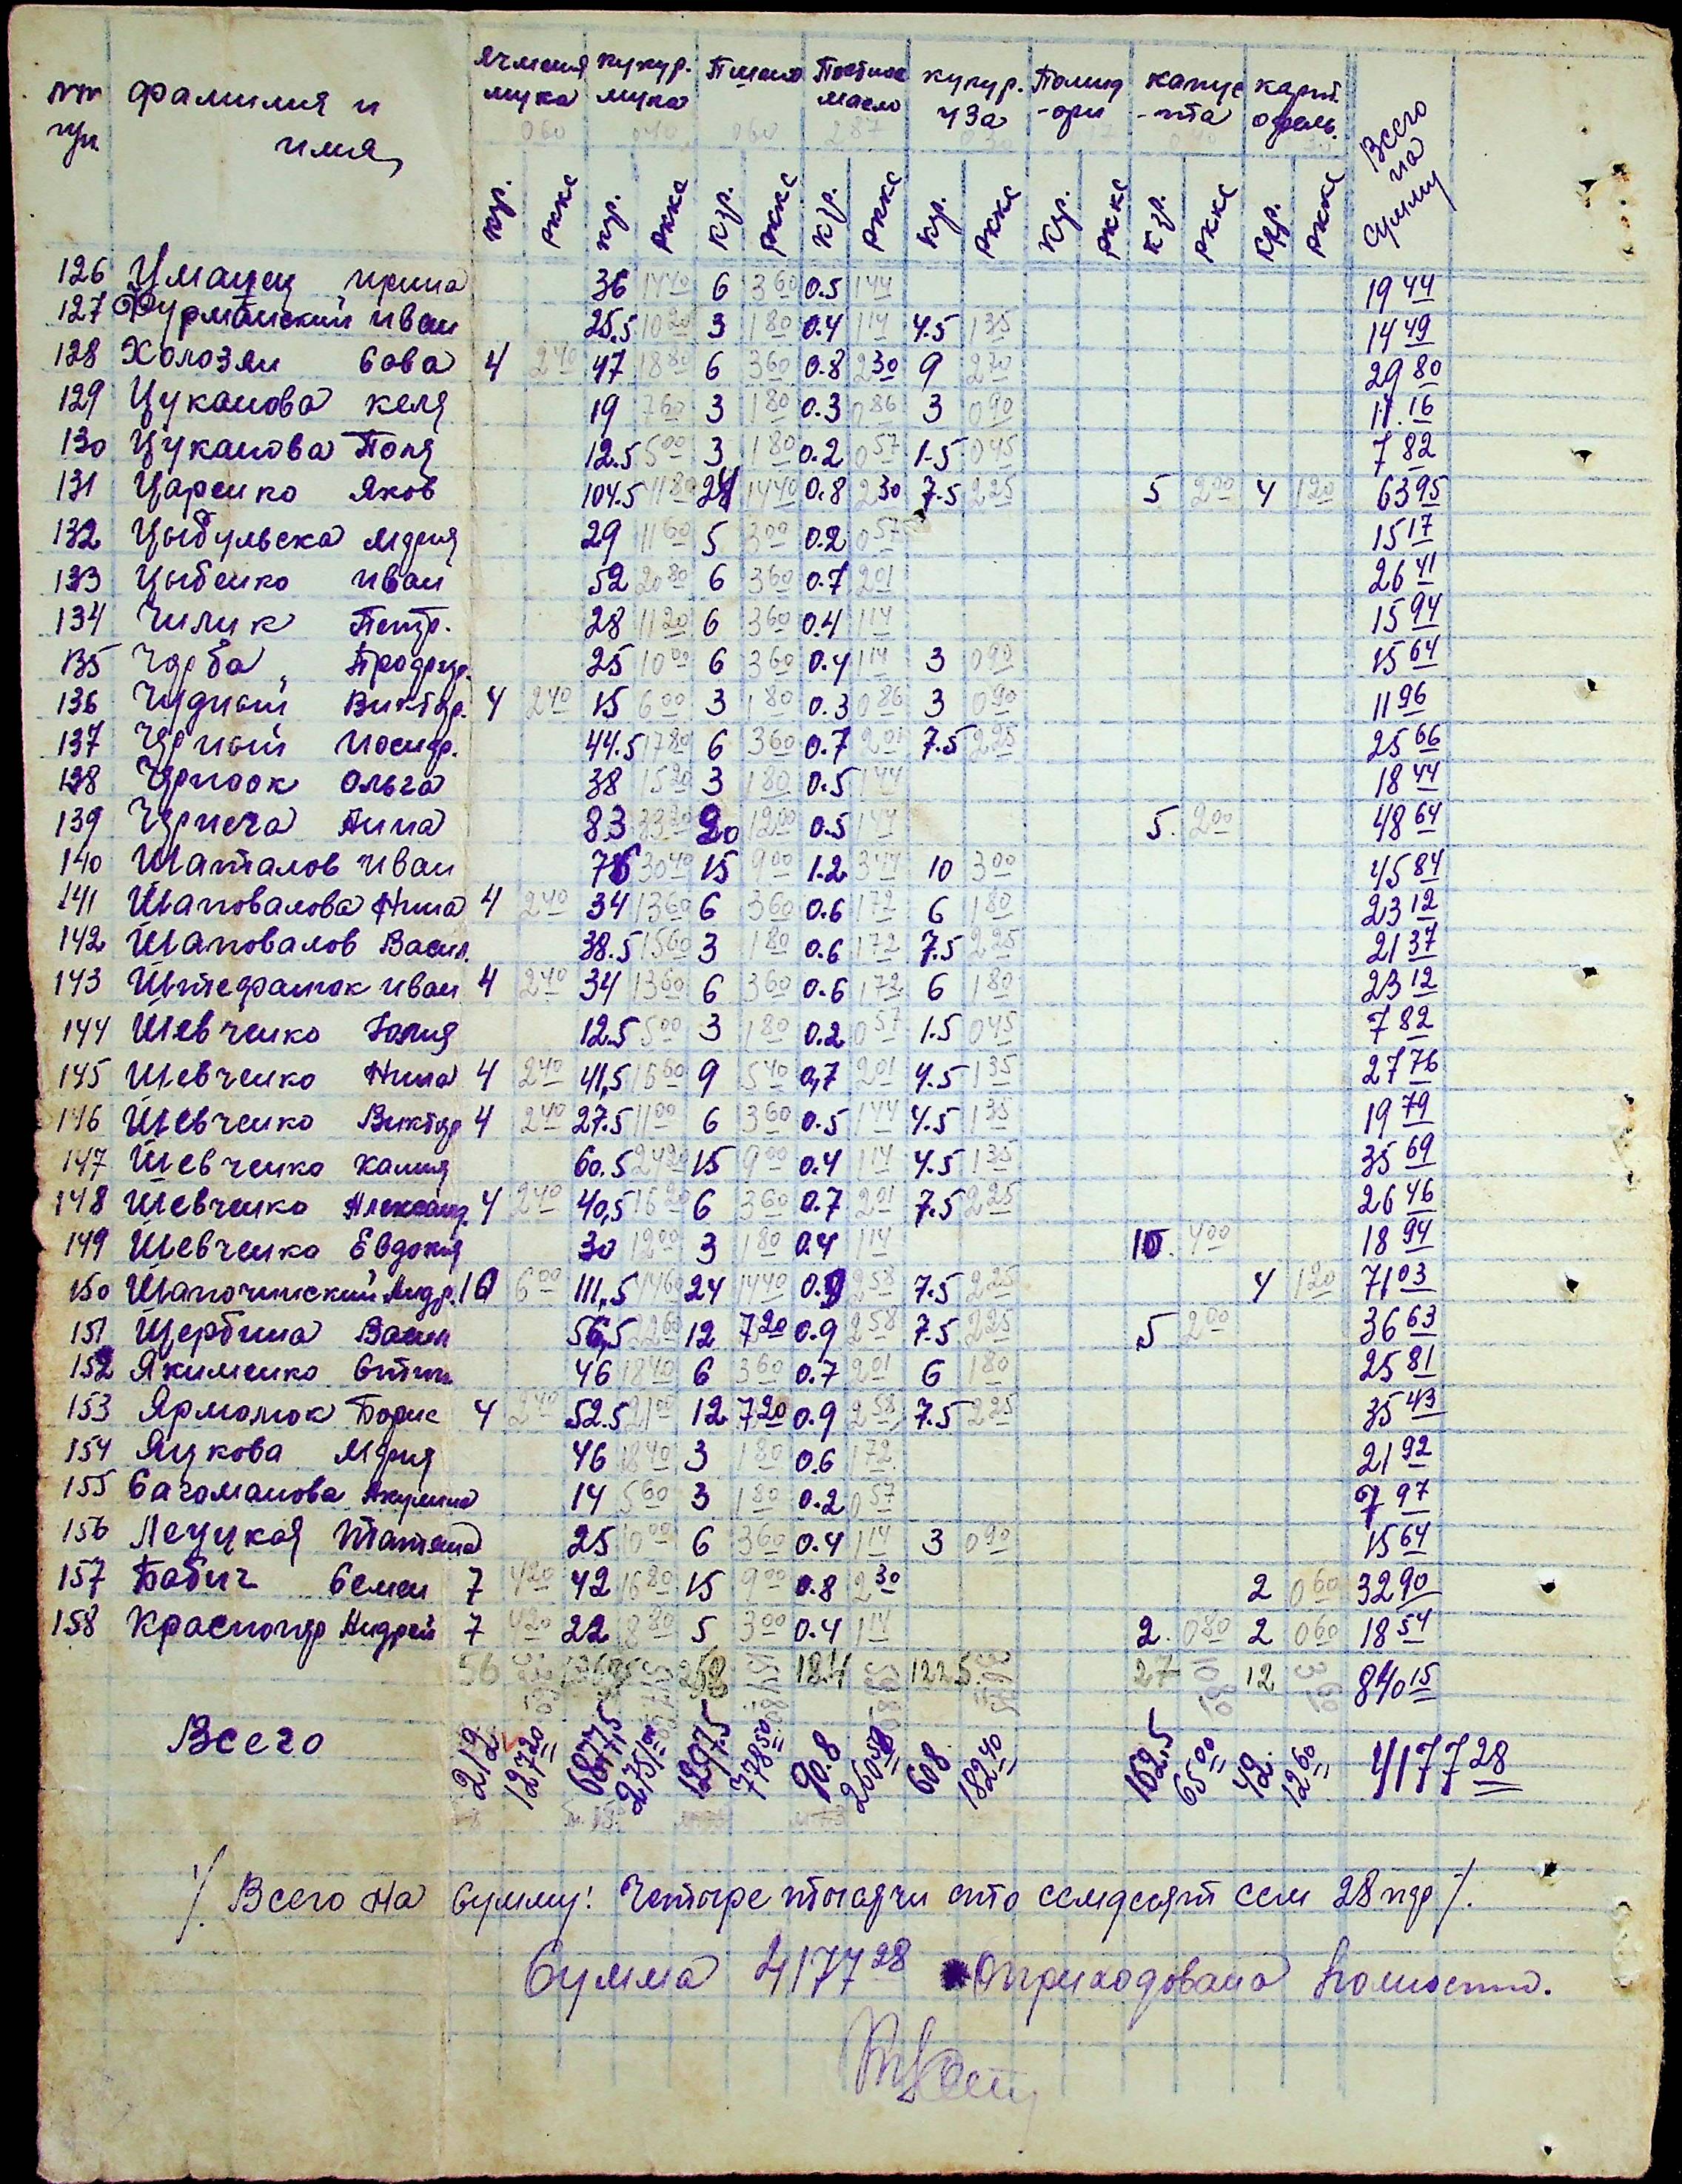 nn фамилия и ячменя кукур. Пшено Постное кукур. Помид капус карт. Всего
пр имя, мука мука масло уза -оры -та офель. на
060 040 060 287 сумму
кгр. РККС кгр. РККС кгр. РККС кгр. РККС кгр. РККС кгр. РККС кгр. РККС кгр. РККС
126 Уманец ирина 36 1440 6 360 0.5 144 1944
127 Фурманский иван 25.5 1020 3 180 0.4 114 4.5 135 1449
128 Холозян Вова 4 240 47 1880 6 360 0.8 230 9 270 2980
129 Цуканова келя 19 760 3 180 0.3 086 3 090 11.16
130 Цуканова Поля 12.5 500 3 180 0.2 057 1.5 045 782
131 Царенко Яков 104.5 4180 24 1440 0.8 230 7.5 225 5 200 4 120 6395
132 Цыбульска Мария 29 1160 5 300 0.2 057 1517
133 Цыбенко иван 52 2080 6 360 0.7 201 2641
134 Чилик Петр. 28 1120 6 360 0.4 114 1594
135 Чарба 25 1000 6 360 0.4 114 3 090 1564
136 Чудный Виктор. 4 240 15 600 3 180 0.3 086 3 090 1196
137 Чорный иосиф. 44.5 1780 6 360 0.7 201 7.5 225 2566
138 Чрноок Ольга 38 1520 3 180 0.5 144 1844
139 Чрнега Анна 83 3320 20 1200 0.5 144 5. 200 4864
140 Шаталов иван 76 3040 15 900 1.2 344 10 300 4584
141 Шаповалова Нина 4 240 34 1360 6 360 0.6 172 6 180 2312
142 Шаповалов Васил. 38.5 1560 3 180 0.6 172 7.5 225 2137
143 Штефанюк иван 4 240 34 1360 6 360 0.6 172 6 180 2312
144 Шевченко Юлия 12.5 500 3 180 0.2 057 1.5 045 782
145 Шевченко Нина 4 240 41,5 1660 9 540 0,7 201 4.5 135 2776
146 Шевченко Виктор 4 240 27.5 1100 6 360 0.5 144 4.5 135 1979
147 Шевченко Калия 60.5 2420 15 900 0.4 114 4.5 135 3569
148 Шевченко Александ. 4 240 40,5 1620 6 360 0.7 201 7.5 225 2646
149 Шевченко Евдокия 30 1200 3 180 0.4 114 10. 400 1894
150 Шапочинский Андр. 10 600 111,5 4460 24 1440 0.9 258 7.5 225 4 120 7103
151 Щербина Васил 56,5 2260 12 720 0.9 258 7.5 225 5 200 3663
152 Якименко 46 1840 6 360 0.7 201 6 180 2581
153 Ярмолюк Борис 4 240 52.5 2100 12 720 0.9 258 7.5 225 3543
154 Яцкова Мария 46 1840 3 180 0.6 172 2192
155 Вагоманова Акулина 14 560 3 180 0.2 057 797
156 Лецукая Татяна 25 1000 6 360 0.4 114 3 090 1564
157 Бабич Семен 7 420 42 1680 15 900 0.8 230 2 060 3290
158 Краснопяр Андрей 7 420 22 880 5 300 0.4 114 2. 080 2 060 1854
56 258 18.4 122.5 27 1080 12 360 84015
Всего 212 12720 6877,5 275100 1297.5 77850 90.8 608 18240 162,5 6500 42. 1260 417728
/. Всего на Сумму: Четыре тысячи сто семдесят сем 28 кар /.
Сумма 417728 Оприходована полностю.